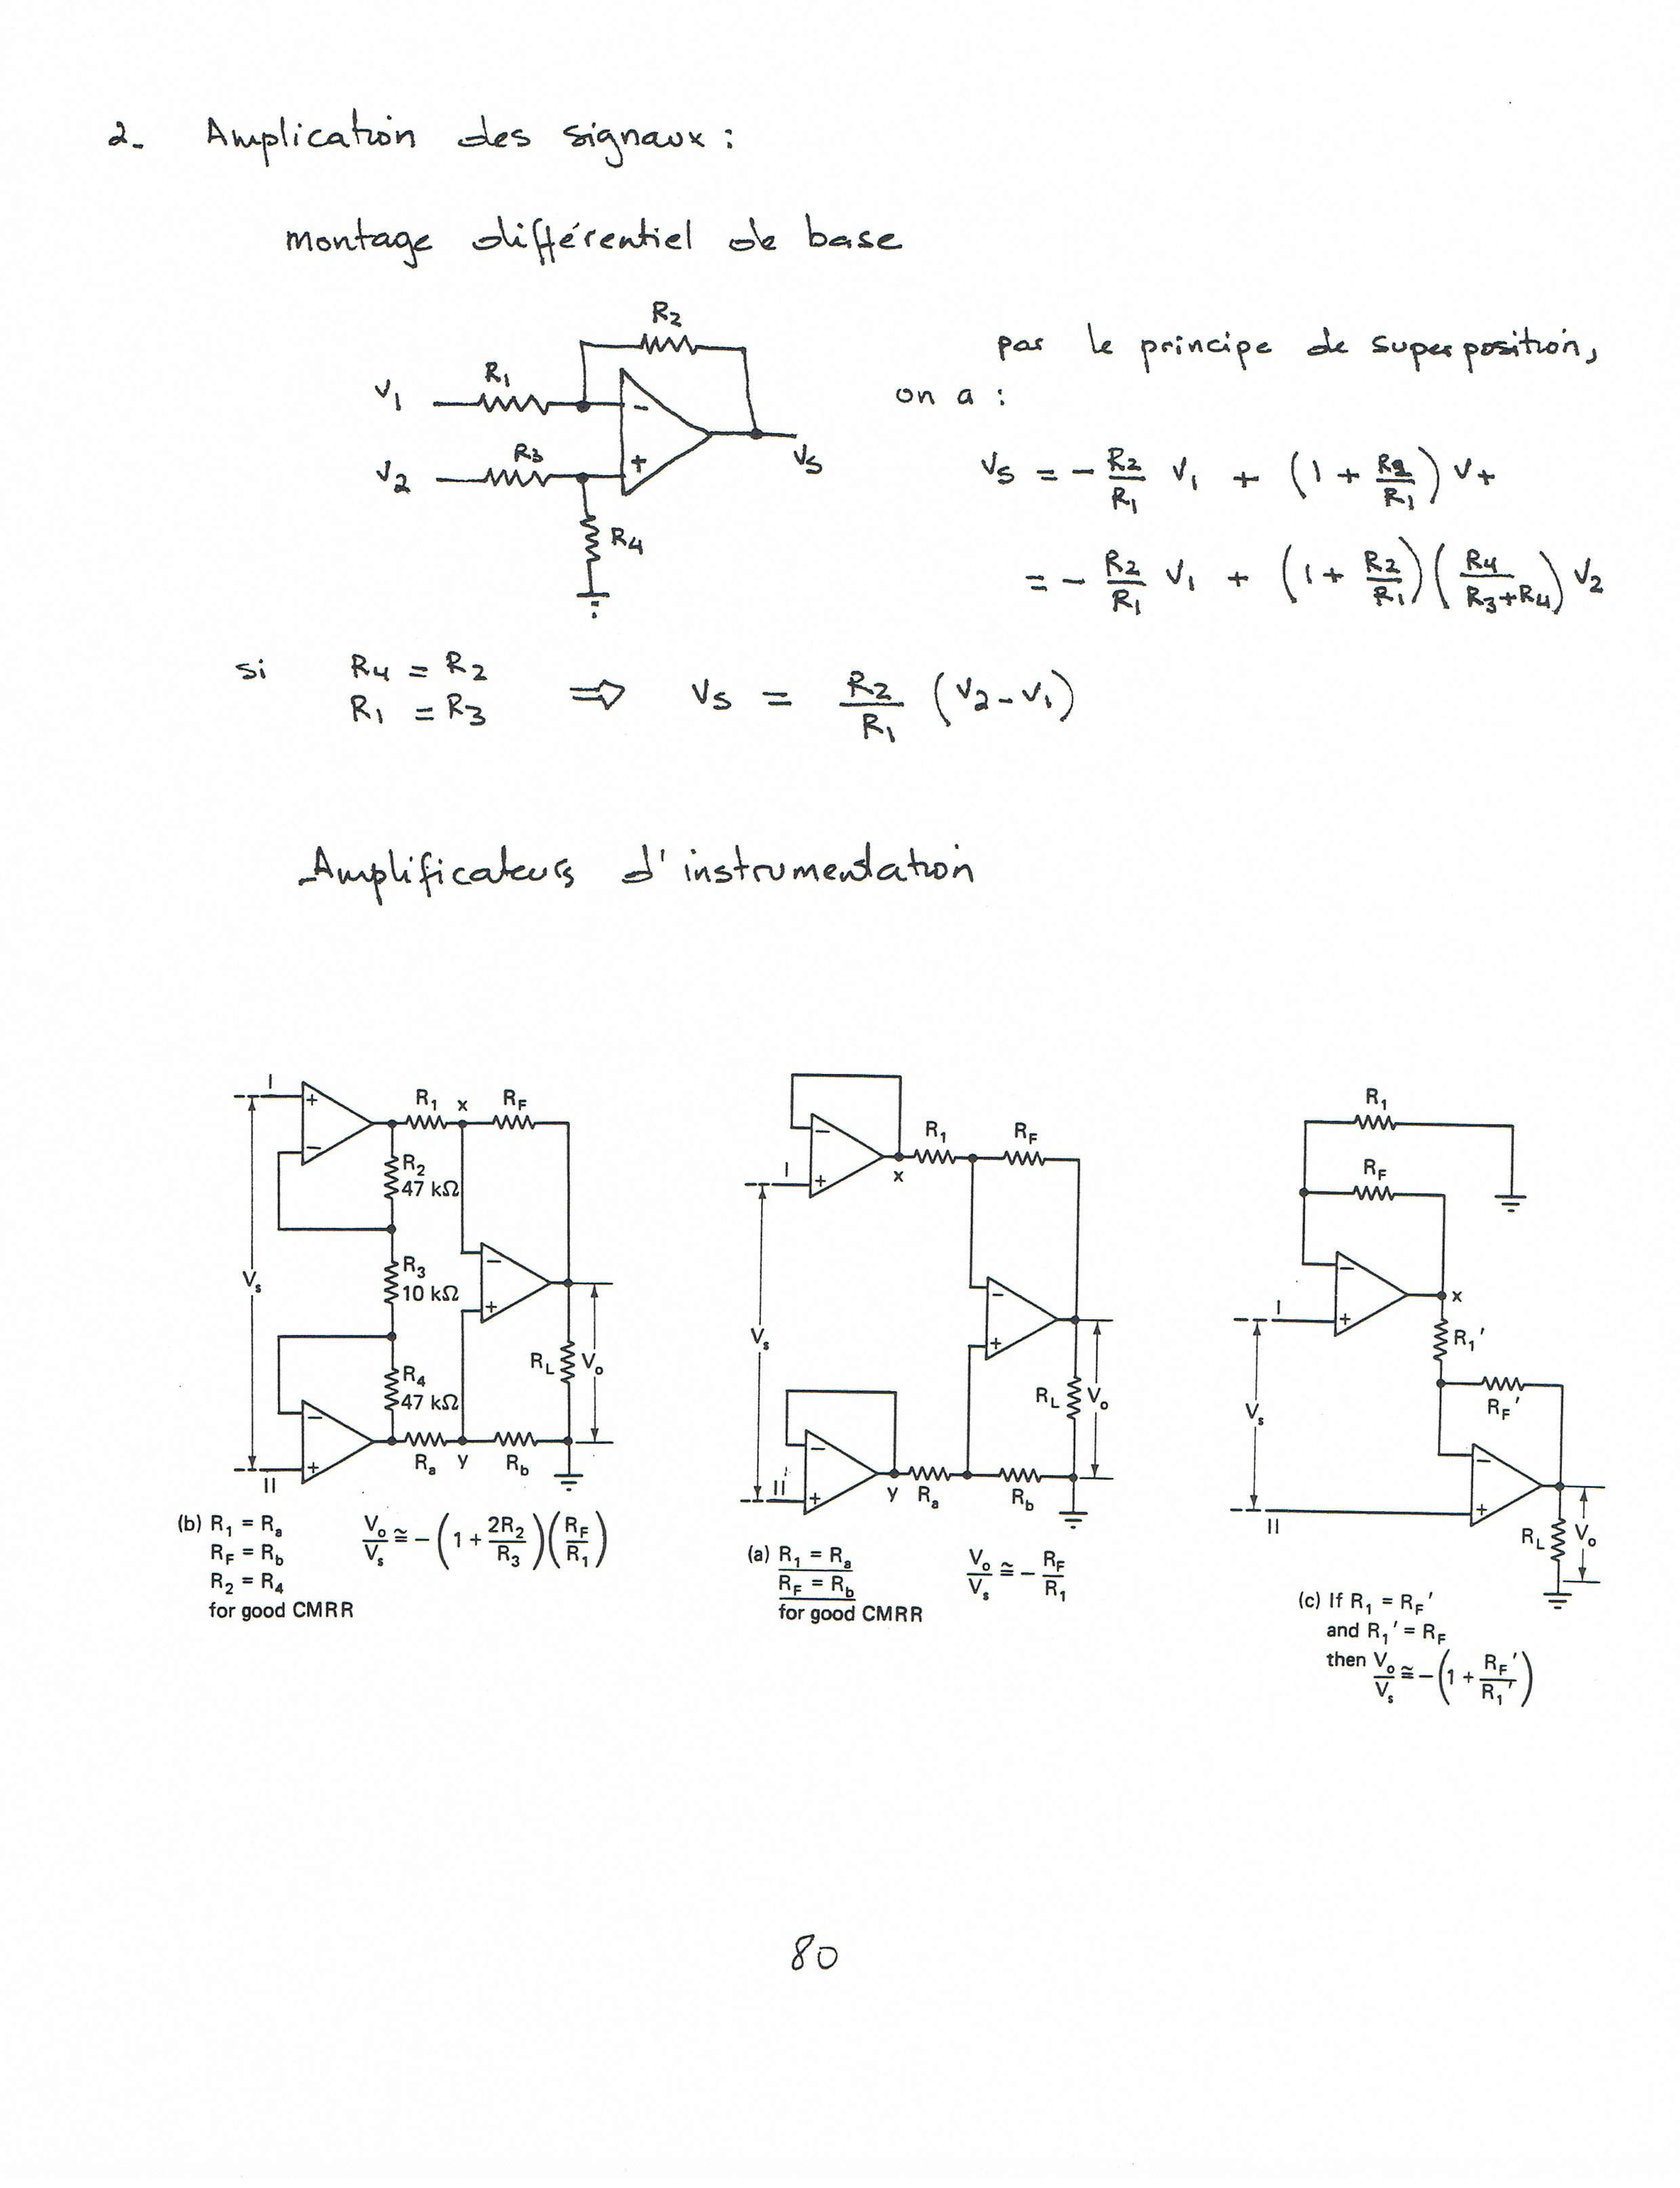 2. Amplication des signaux :
montage différentiel de base
R2
R1
V1
-
R3
V2
+
VS
R4
par le principe de superposition,
on a :
VS = - R2/R1 V1 + (1 + R2/R1) V+
= - R2/R1 V1 + (1 + R2/R1) (R4/(R3+R4)) V2
si R4 = R2
R1 = R3
⇒ VS = R2/R1 (V2 - V1)
Amplificateurs d'instrumentation
I
+
-
R1 x RF
R2
47 kΩ
R3
10 kΩ
Vs
-
+
R4
47 kΩ
RL
Vo
-
+
II
Ra y Rb
(b) R1 = Ra
RF = Rb
R2 = R4
for good CMRR
Vo/Vs ≅ - (1 + 2R2/R3) (RF/R1)
-
+
I
x
R1
RF
Vs
-
+
RL
Vo
-
+
II
y Ra
Rb
(a) R1 = Ra
RF = Rb
for good CMRR
Vo/Vs ≅ - RF/R1
R1
RF
-
+
I
x
R1'
RF'
Vs
-
+
II
RL
Vo
(c) If R1 = RF'
and R1' = RF
then Vo/Vs ≅ - (1 + RF'/R1')
80